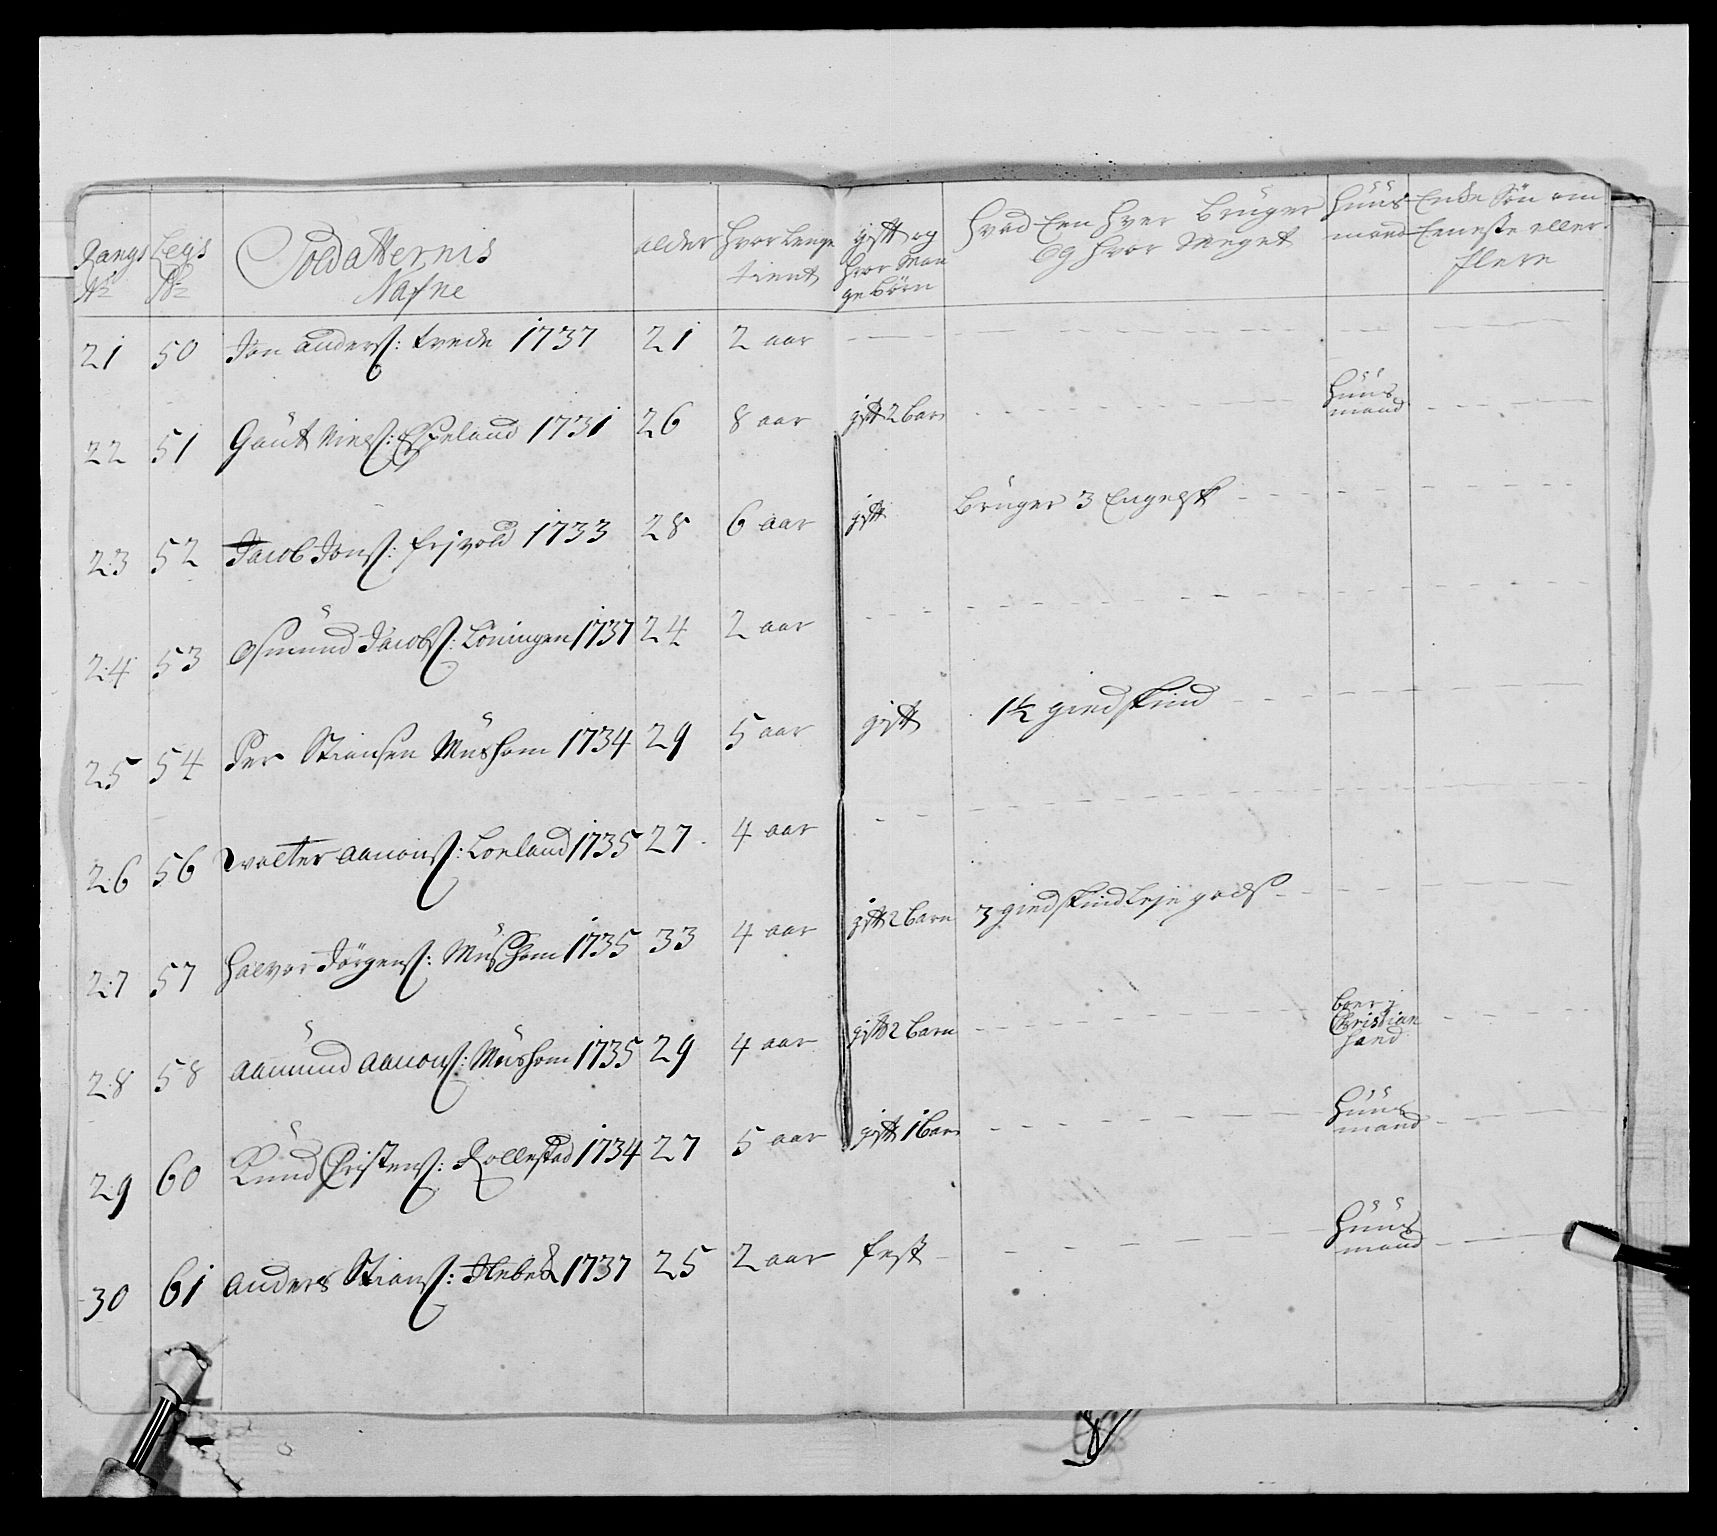 Rangs No Legs No Soldatternis Nafne alder hvor lenge tient gift og hvor Mange børn hvad Een hver bruger og hvor Meget huusmand Ende Søn om Eeneste eller flere
21 50 Jon anders: trede 1737 21 2 aar
22 51 Gaut Niels: Espeland 1731 26 8 aar gift 2 barn huusmand
23 52 Jacob Jons: frivold 1733 28 6 aar gift bruger 3 Engelsk
24 53 Osmund Jacobs: Løningen 1737 24 2 aar
25 54 Per Stiansen Mushom 1734 29 5 aar gift 1½ giedskind
26 56 wolter aanons: Loeland 1735 27 4 aar
27 57 halvor Jørgens: Mushom 1735 33 4 aar gift 2 barn 3 giedskind leje gods
28 58 aamund aanons: Mushom 1735 29 4 aar gift 2 barn boer i Christiansand
29 60 Knud Christens: Rollestad 1734 27 5 aar gift 1 barn huusmand
30 61 anders Stians: 1737 25 2 aar fest huusmand